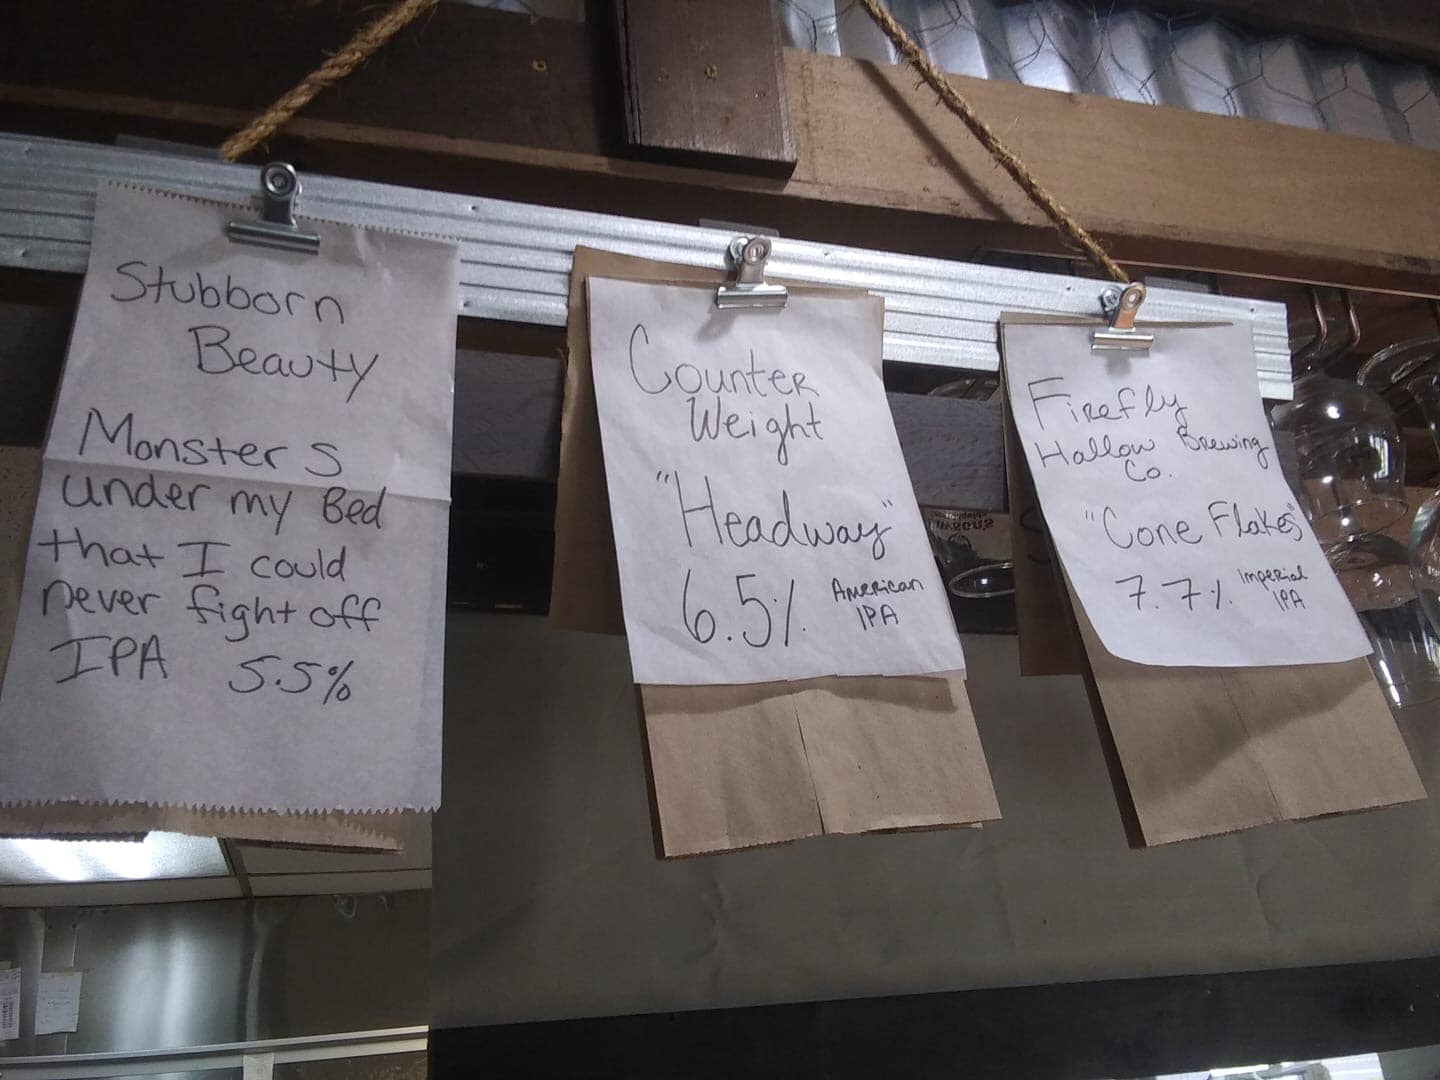 Stubborn
Beauty
Monsters
under my Bed
that I could
never fight off
IPA 5.5%
Counter
Weight
"Headway"
6.5% American
IPA
Firefly
Hallow Brewing
Co.
"Cone Flakes"
7.7% Imperial
IPA